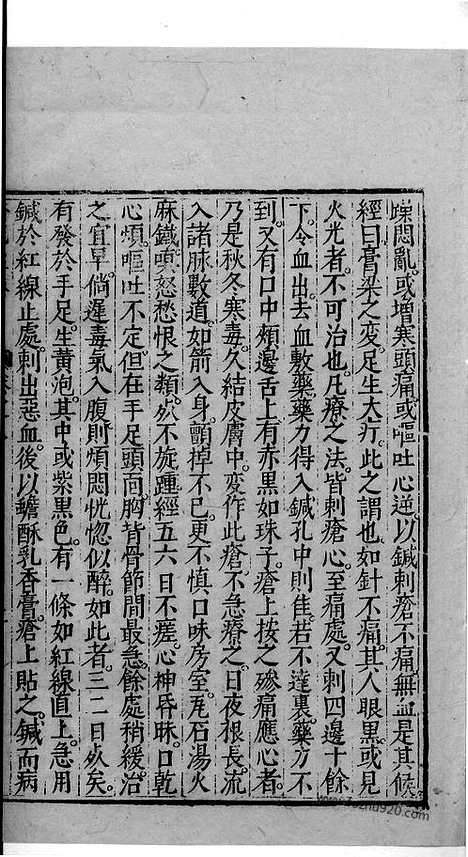 躁悶亂。或增寒頭痛。或嘔吐心逆。以鍼刺瘡不痛。無血。是其候
經曰。膏粱之變。足生大疔。此之謂也。如針不痛。其人眼黒。或見
火光者。不可治也。凡療之法。皆刺瘡心。至痛處。又刺四邊十餘
下。令血出。去血敷藥。藥力得入鍼孔中則佳。若不達裏。藥方不
到。又有口中頰邊舌上有赤黒如珠子。瘡上按之磣痛應心者。
乃是秋冬寒毒。久結皮膚中。變作此瘡。不急療之。日夜根長。流
入諸脉數道。如箭入身。顫掉不已。更不慎口味房室。尭石湯火
麻鐵嗔怒愁恨之類。必不旋踵。經五六日不瘥。心神昏昧。口乾
心煩。嘔吐不定。但在手足頭面胸背骨節間最急。餘處稍緩。治
之宜早。倘遲毒氣入腹。則煩悶恍惚似醉。如此者。三二日必矣。
有發於手足。生黄泡。其中或紫黒色。有一條如紅線直上。急用
鍼於紅線止處。刺出惡血。後以蟾酥乳香膏。瘡上貼之。鍼而病